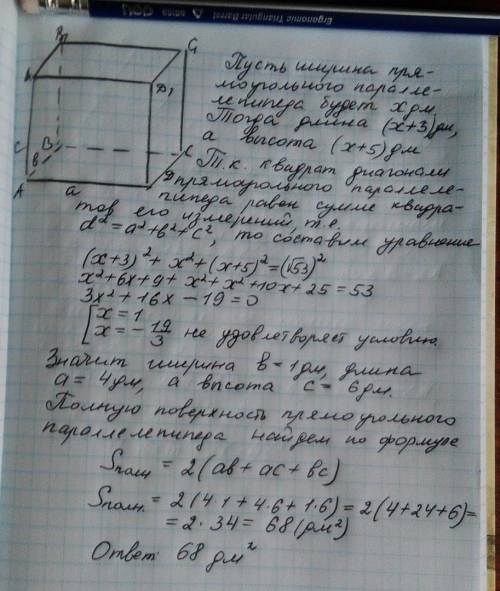 Ergonomic Triangular Barrel
B₁
C₁
A₁
D₁
Пусть ширина пря-
моугольного паралле-
лепипеда будет x дм
Тогда длина (x+3) дм,
а высота (x+5) дм
Т.к. квадрат диагонали
прямоугольного паралле-
пипеда равен сумме квадра-
тов его измерений, т.е.
d² = a² + b² + c², то составим уравнение
c
B
C
b
A
a
D
(x+3)² + x² + (x+5)² = (√53)²
x² + 6x + 9 + x² + x² + 10x + 25 = 53
3x² + 16x − 19 = 0
[ x = 1
x = − 19/3 не удовлетворяет условию.
Значит ширина b = 1 дм, длина
a = 4 дм, а высота c = 6 дм.
Полную поверхность прямоугольного
параллелепипеда найдем по формуле
Sполн = 2(ab + ac + bc)
Sполн. = 2(4·1 + 4·6 + 1·6) = 2(4+24+6) =
= 2·34 = 68 (дм²)
Ответ: 68 дм²